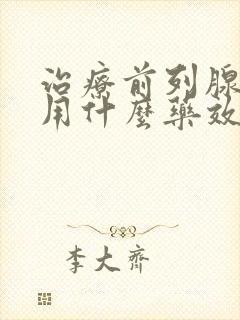 治療前列腺
用什麼藥效
李大齊